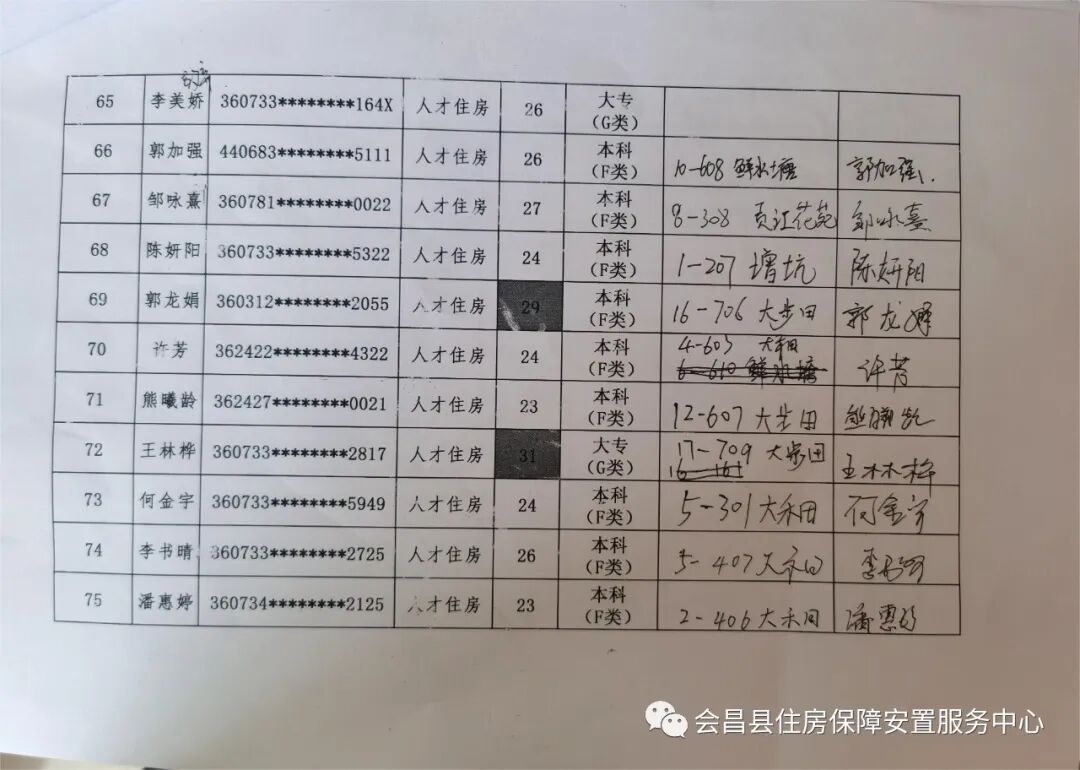 65 李美娇 360733********164X 人才住房 26 大专(G类)
66 郭加强 440683********5111 人才住房 26 本科(F类) 10-608 鲜水塘 郭加强
67 邹咏熹 360781********0022 人才住房 27 本科(F类) 8-308 贡江花苑 邹咏熹
68 陈妍阳 360733********5322 人才住房 24 本科(F类) 1-207 增坑 陈妍阳
69 郭龙娟 360312********2055 人才住房 29 本科(F类) 16-706 大步田 郭龙娟
70 许芳 362422********4322 人才住房 24 本科(F类) 4-603 大禾田 6-610 鲜水塘 许芳
71 熊曦龄 362427********0021 人才住房 23 本科(F类) 12-607 大步田 熊曦龄
72 王林桦 360733********2817 人才住房 31 大专(G类) 17-709 大步田 16-161 王林桦
73 何金宇 360733********5949 人才住房 24 本科(F类) 5-301 大禾田 何金宇
74 李书晴 360733********2725 人才住房 26 本科(F类) 5-407 大禾田 李书晴
75 潘惠婷 360734********2125 人才住房 23 本科(F类) 2-406 大禾田 潘惠婷
会昌县住房保障安置服务中心